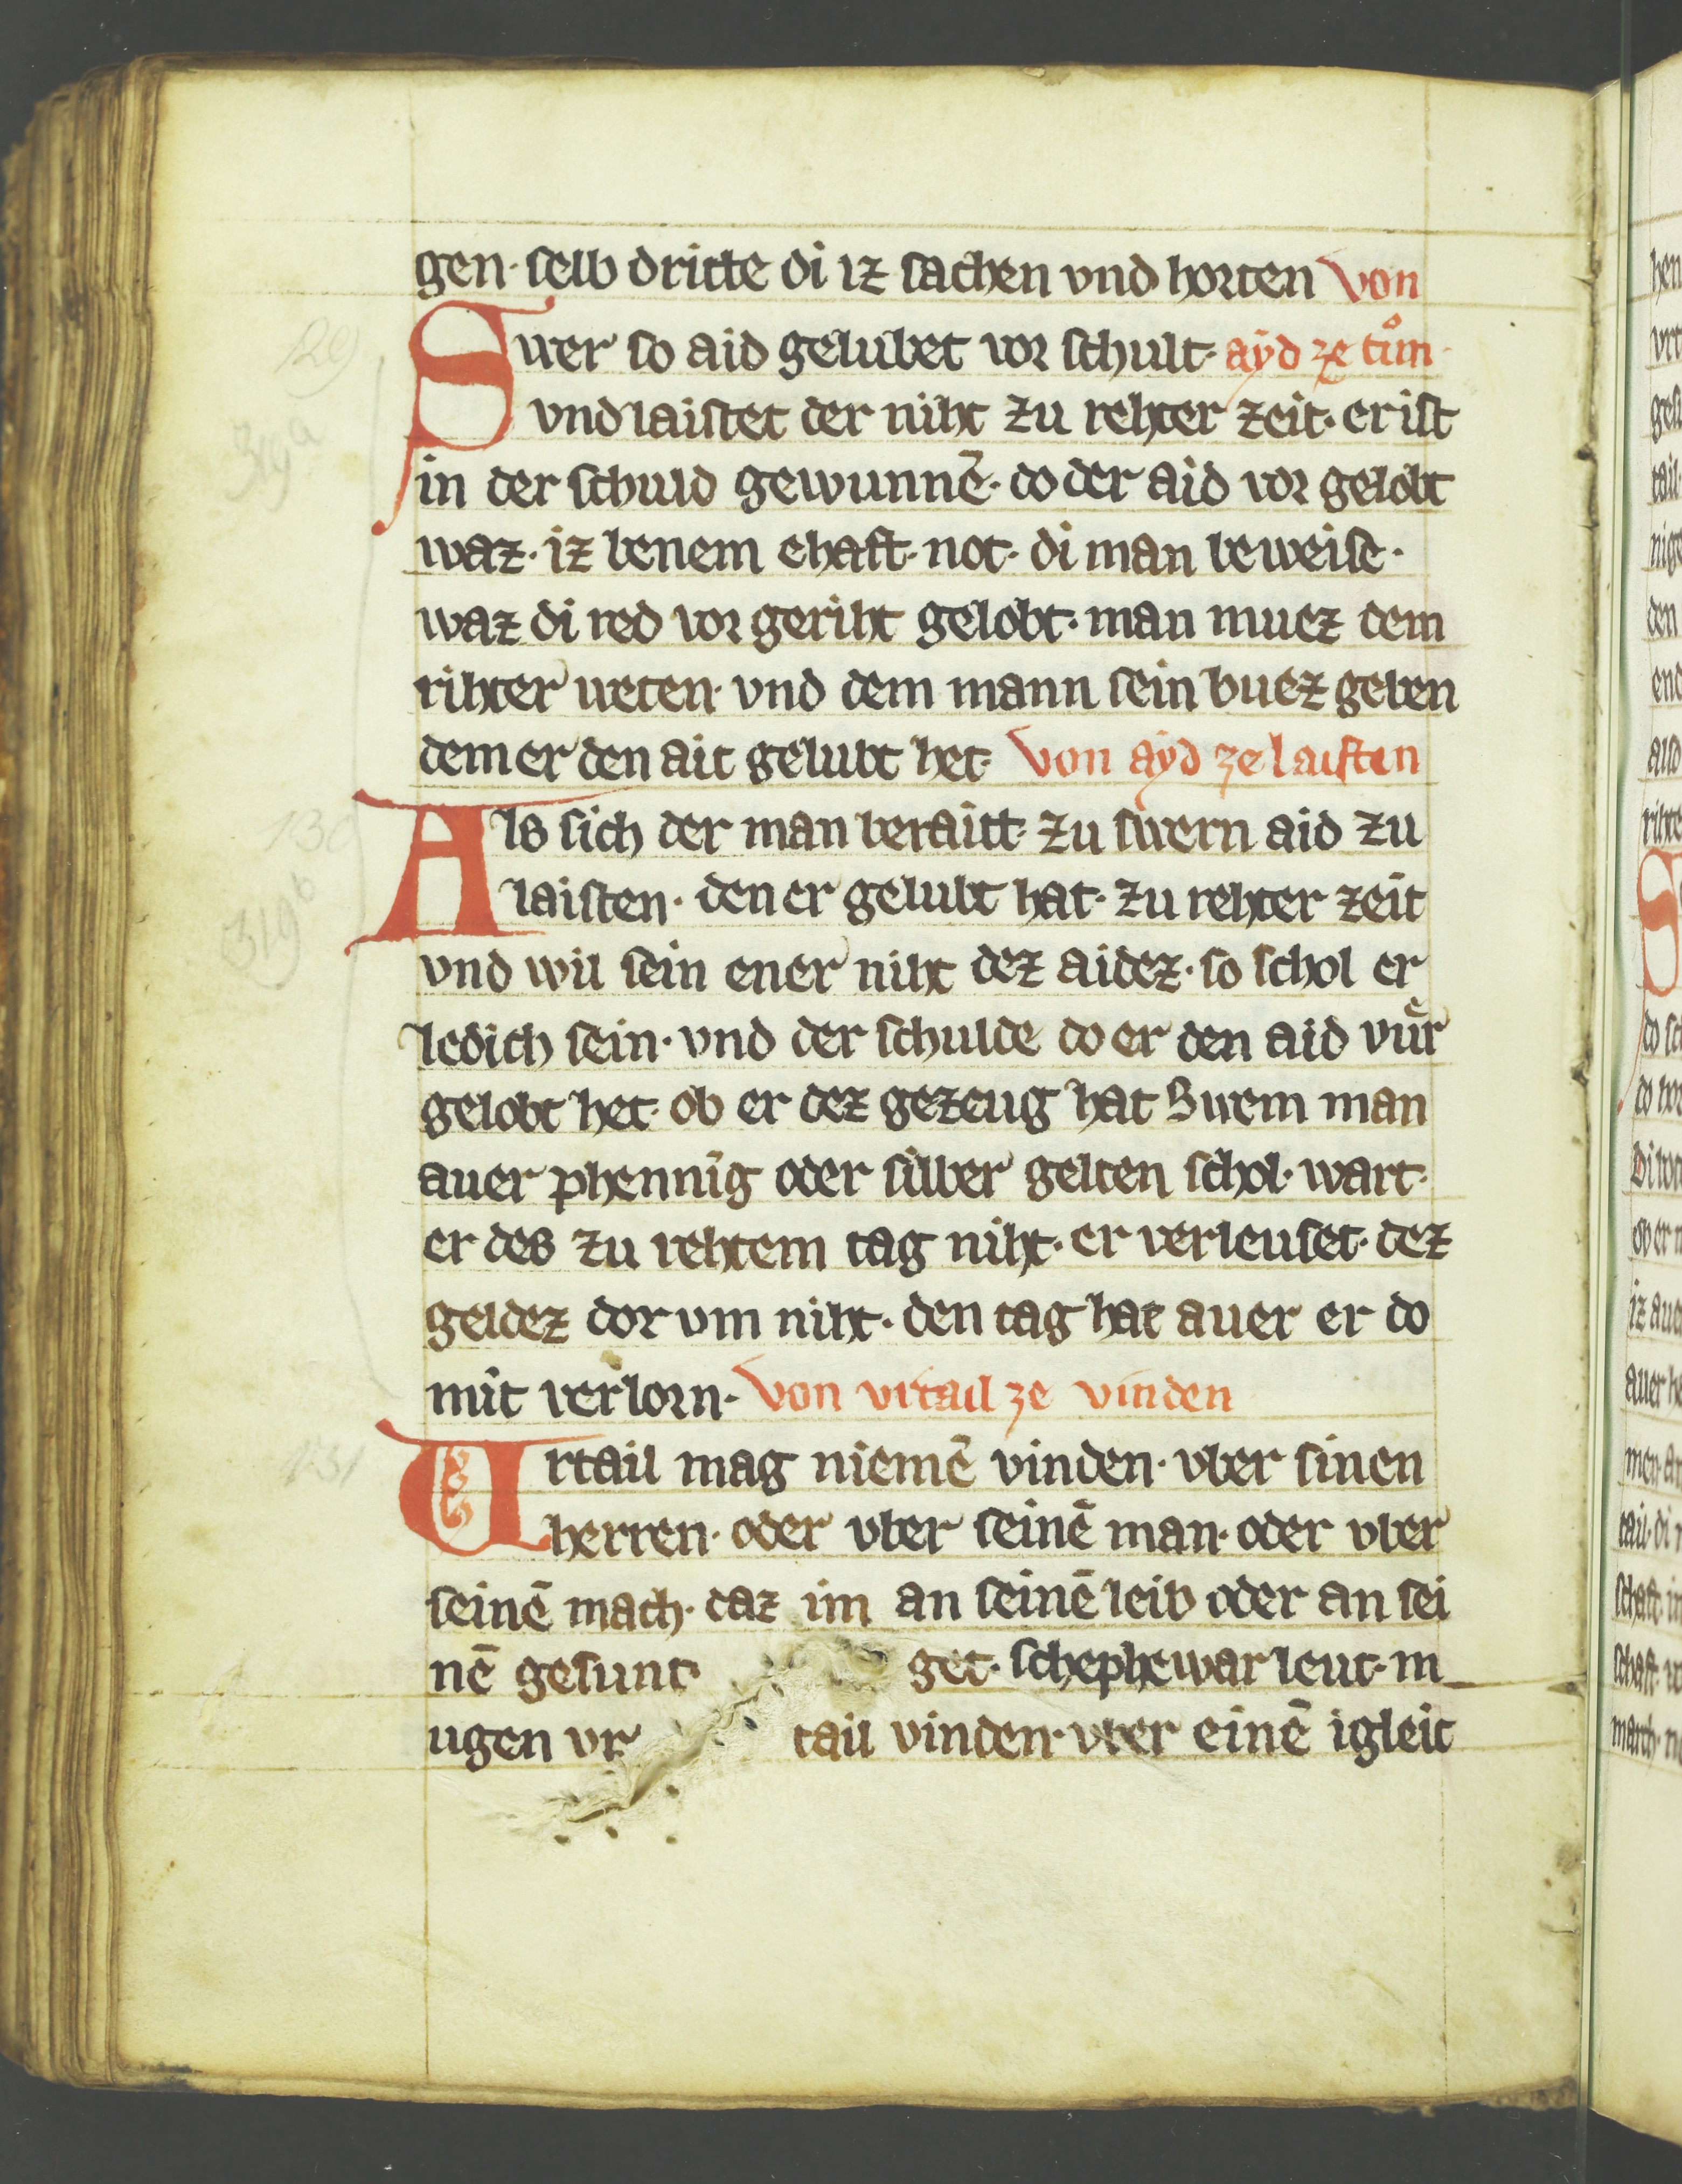 gen· selb dritte di iz sachen vnd horten Von
Swer so aid gelubet vor schult· ayd ze tůn·
vnd laistet der niht zu rehter zeit· er ist
in der schuld gewunnē· do der aid vor gelobt
waz· iz benem ehaft· not· di man beweise·
waz di red vor geriht gelobt· man muez dem
rihter weten· vnd dem mann sein buez geben
dem er den ait gelubt het· Von ayd ze laisten
Als sich der man beraitt· zu swern aid zu
laisten· den er gelubt hat· zu rehter zeit
vnd wil sein ener niht dez aidez· so schol er
ledich sein· vnd der schulde do er den aid vuͤr
gelobt het· ob er dez gezeug hat Swem man
auer phennig oder silber gelten schol· wart·
er des zu rehtem tag niht· er verleuset· dez
geldez dor vm niht· den tag hat auer er do
mit verlorn· Von vrtail ze vinden
Urtail mag niemē vinden· vber sinen
herren· oder vber seinē man· oder vber
seinē mach· daz im an seinē leib oder an sei
nē gesunt get· schephewar leut· m
ugen vr tail vinden· vber einē igleit
129
319a
130
319b
131